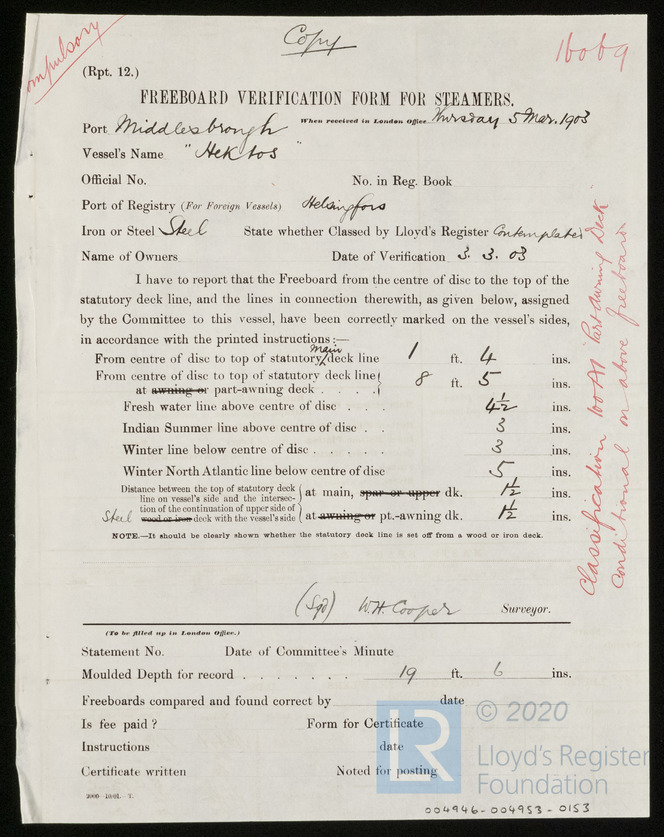 Compulsory
Copy
16069
(Rpt. 12.)
FREEBOARD VERIFICATION FORM FOR STEAMERS.
Port Middlesbrough When received in London Office Thursday 5 Mar. 1903
Vessel's Name "Hektos"
Official No. No. in Reg. Book
Port of Registry (For Foreign Vessels) Helsingfors
Iron or Steel Steel State whether Classed by Lloyd's Register Contemplated
Name of Owners Date of Verification 3. 3. 03
I have to report that the Freeboard from the centre of disc to the top of the
statutory deck line, and the lines in connection therewith, as given below, assigned
by the Committee to this vessel, have been correctly marked on the vessel's sides,
in accordance with the printed instructions :—
From centre of disc to top of statutory main deck line 1 ft. 4 ins.
From centre of disc to top of statutory deck line
at awning or part-awning deck . . . . 8 ft. 5 ins.
Fresh water line above centre of disc . . . 4½ ins.
Indian Summer line above centre of disc . . 3 ins.
Winter line below centre of disc . . . . . 3 ins.
Winter North Atlantic line below centre of disc 5 ins.
Distance between the top of statutory deck
line on vessel's side and the intersec-
at main, spar or upper dk. 1½ ins.
tion of the continuation of upper side of
Steel wood or iron deck with the vessel's side
at awning or pt.-awning dk. 1½ ins.
NOTE.—It should be clearly shown whether the statutory deck line is set off from a wood or iron deck.
Classification 100A1 Part Awning Deck
Conditional on above freeboard
(Sgd) W.H. Cooper Surveyor.
(To be filled up in London Office.)
Statement No. Date of Committee's Minute
Moulded Depth for record . . . . . . . 19 ft. 6 ins.
Freeboards compared and found correct by date
Is fee paid ? Form for Certificate
Instructions date
Certificate written Noted for posting
2000—10.01. T.
LR
© 2020
Lloyd's Register
Foundation
004946-004953-0153